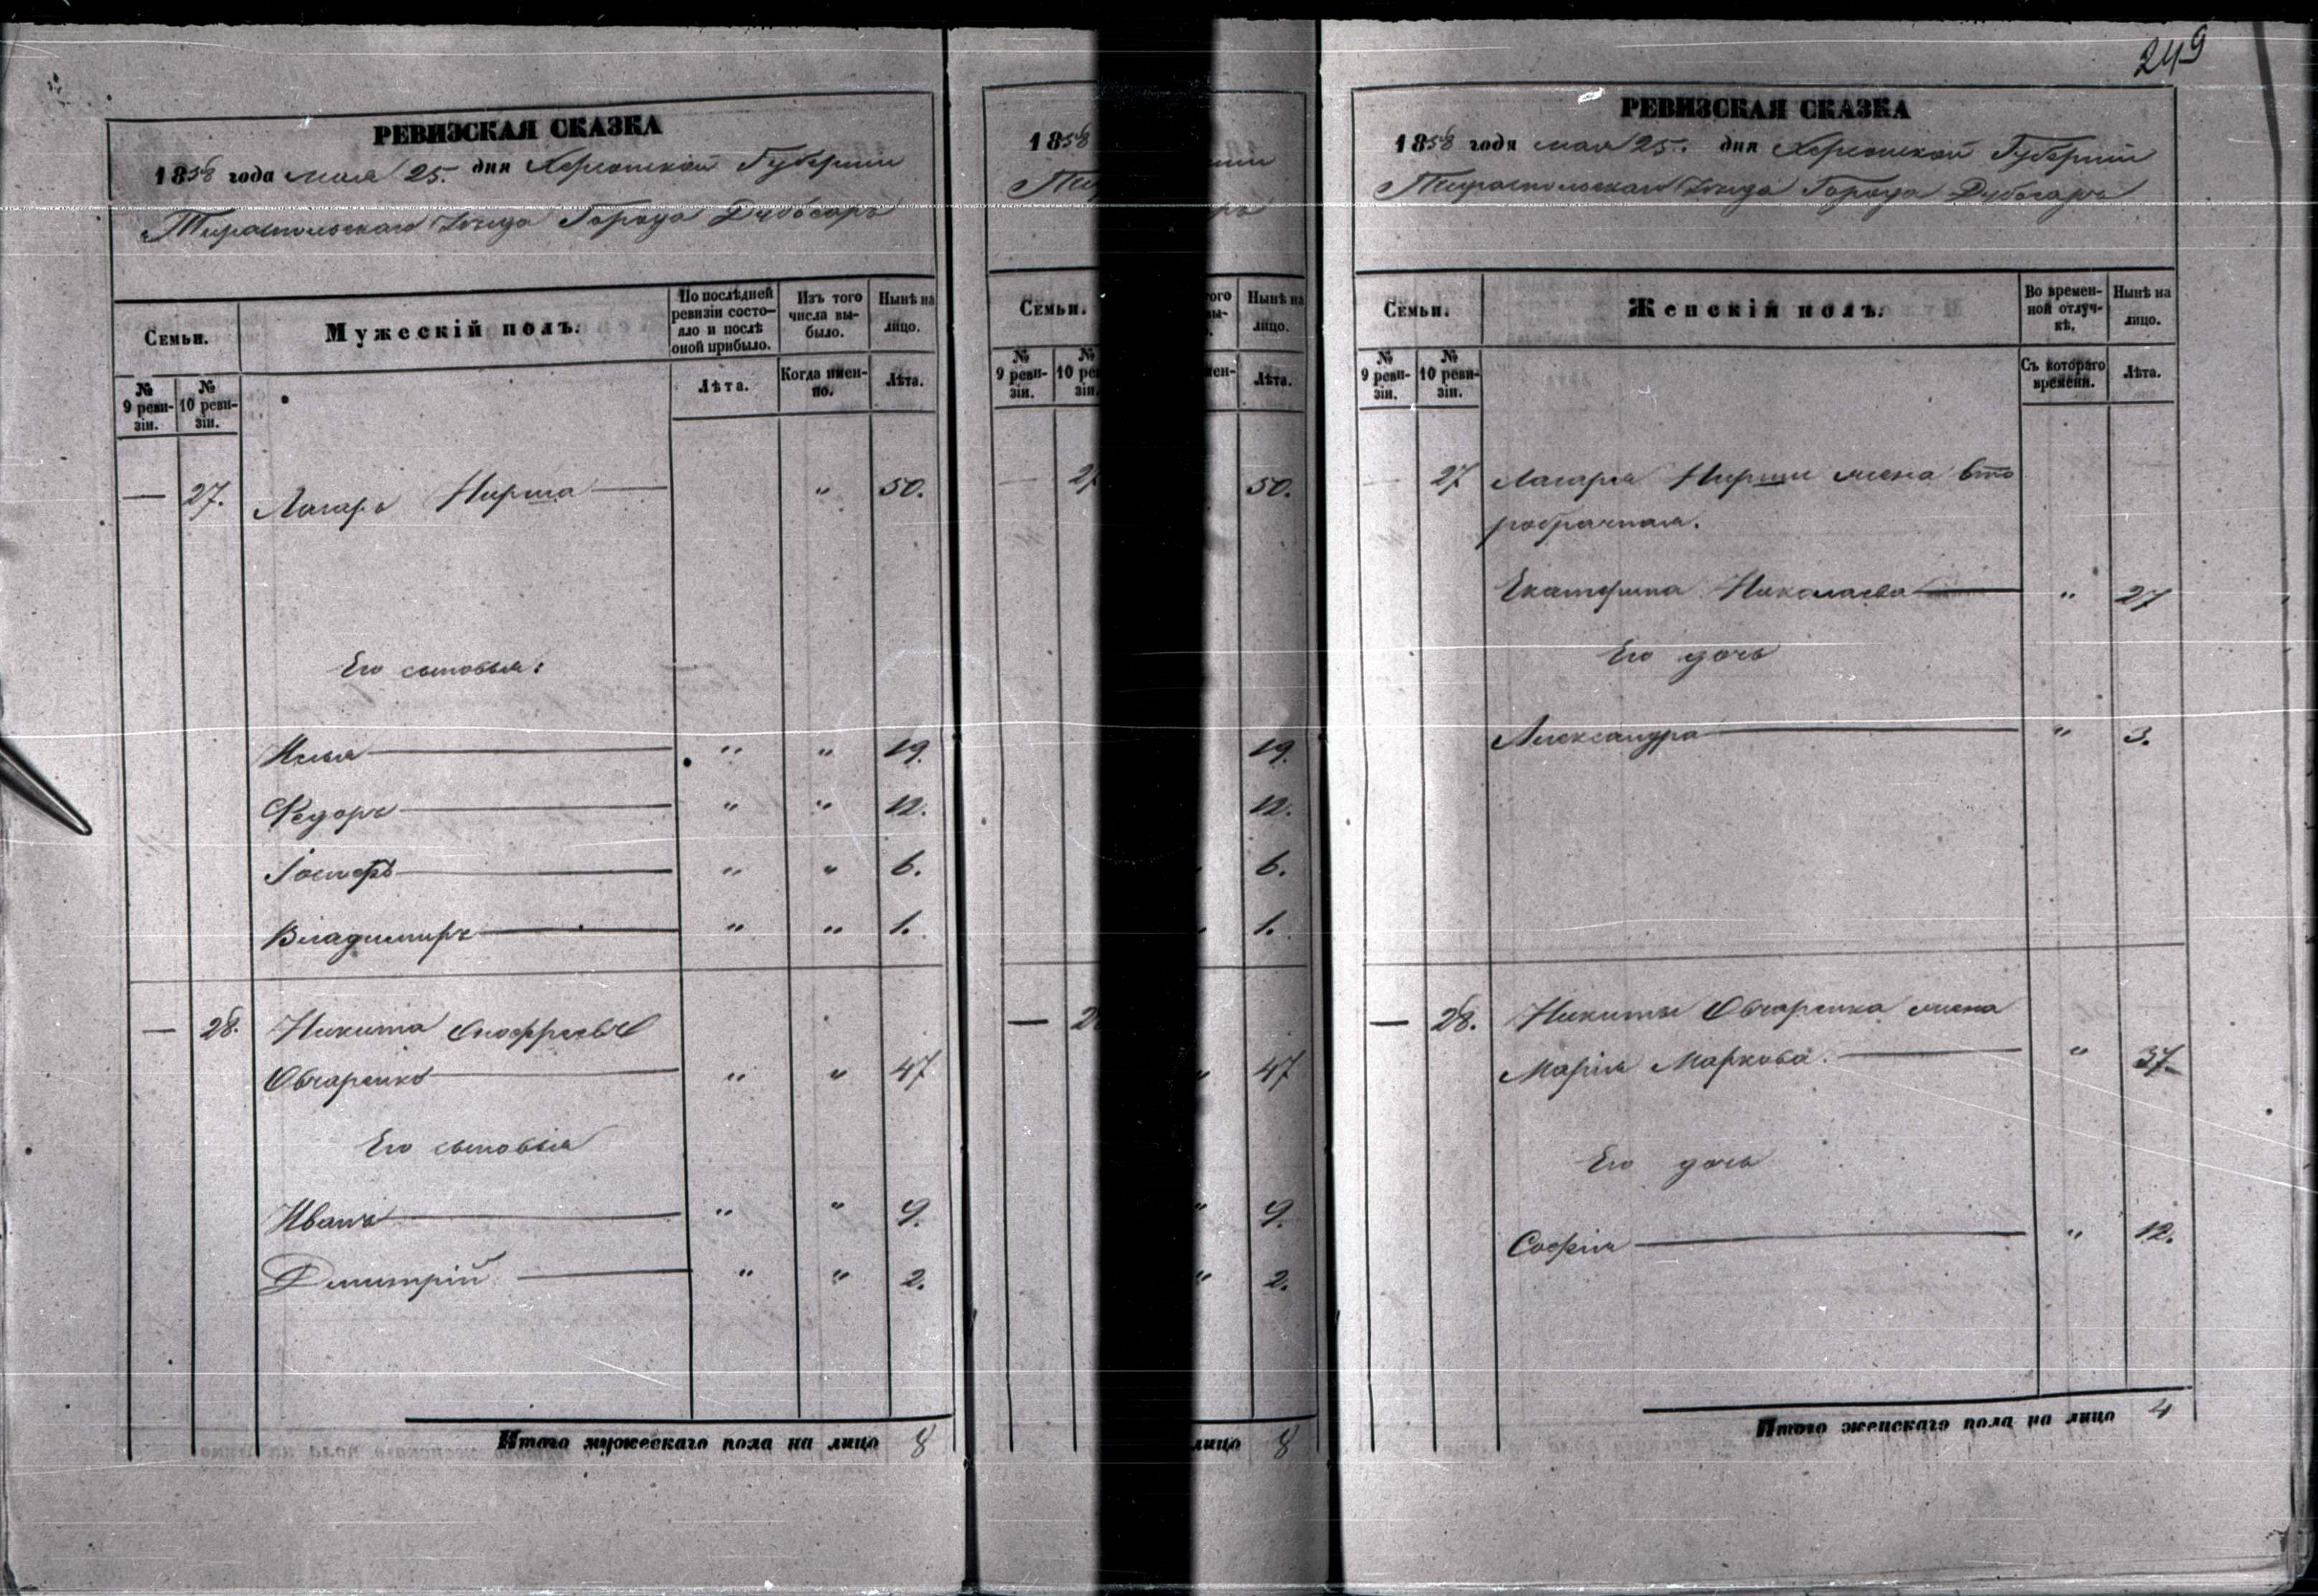 249
РЕВИЗСКАЯ СКАЗКА
1858 года мая 25. дня Херсонской Губернии
Тираспольскаго Уѣзда Города Дубосаръ
Семьи.
Мужескій полъ.
По послѣдней ревизіи состояло и послѣ оной прибыло.
Изъ того числа выбыло.
Нынѣ на лицо.
№ 9 ревизіи.
№ 10 ревизіи.
Лѣта.
Когда именно.
Лѣта.
— 27. Лазарь Кирша — " 50.
Его сыновья:
Илья — " " 19.
Федоръ — " " 12.
Іосифъ — " " 6.
Владимиръ — " " 1.
— 28. Никита
Овчаренко — " " 47
Его сыновья
Иванъ — " " 9.
Дмитрій — " " 2.
Итого мужескаго пола на лицо 8
1858
Семьи.
Нынѣ на лицо.
№ 9 ревизіи.
Лѣта.
50.
19.
12.
6.
1.
47
9.
2.
лицо 8
РЕВИЗСКАЯ СКАЗКА
1858 года мая 25. дня Херсонской Губернии
Тираспольскаго Уѣзда Города Дубосаръ
Семьи.
Женскій полъ.
Во временной отлучкѣ.
Нынѣ на лицо.
№ 9 ревизіи.
№ 10 ревизіи.
Съ котораго времени.
Лѣта.
— 27 Лазаря Кирши жена вто
робрачная.
Екатерина Николаева — " 27
Его дочь
Александра — " 3.
— 28. Никиты Овчаренка жена
Марія Маркова. — " 37
Его дочь
Софія — " 12.
Итого женскаго пола на лицо 4